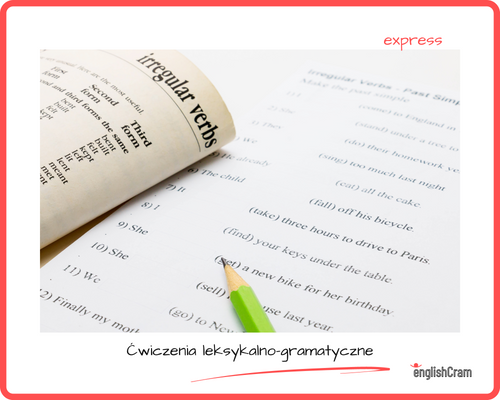 express
irregular verbs
First form
Second form
Third form
and third forms the same
bent
built
felt
kept
left
lit
meant
met
Irregular Verbs - Past Simp
Make the past simple
(come) to England in
(stand) under a tree to
(do) their homework ye
(sing) too much last night
(eat) all the cake.
(fall) off his bicycle.
(take) three hours to drive to Paris.
(find) your keys under the table.
(get) a new bike for her birthday.
(sell)
use last year.
(go) to New
already
6) The child
7) It
8) I
9) She
10) She
11) We
12) Finally my moth
Ćwiczenia leksykalno-gramatyczne
englishCram